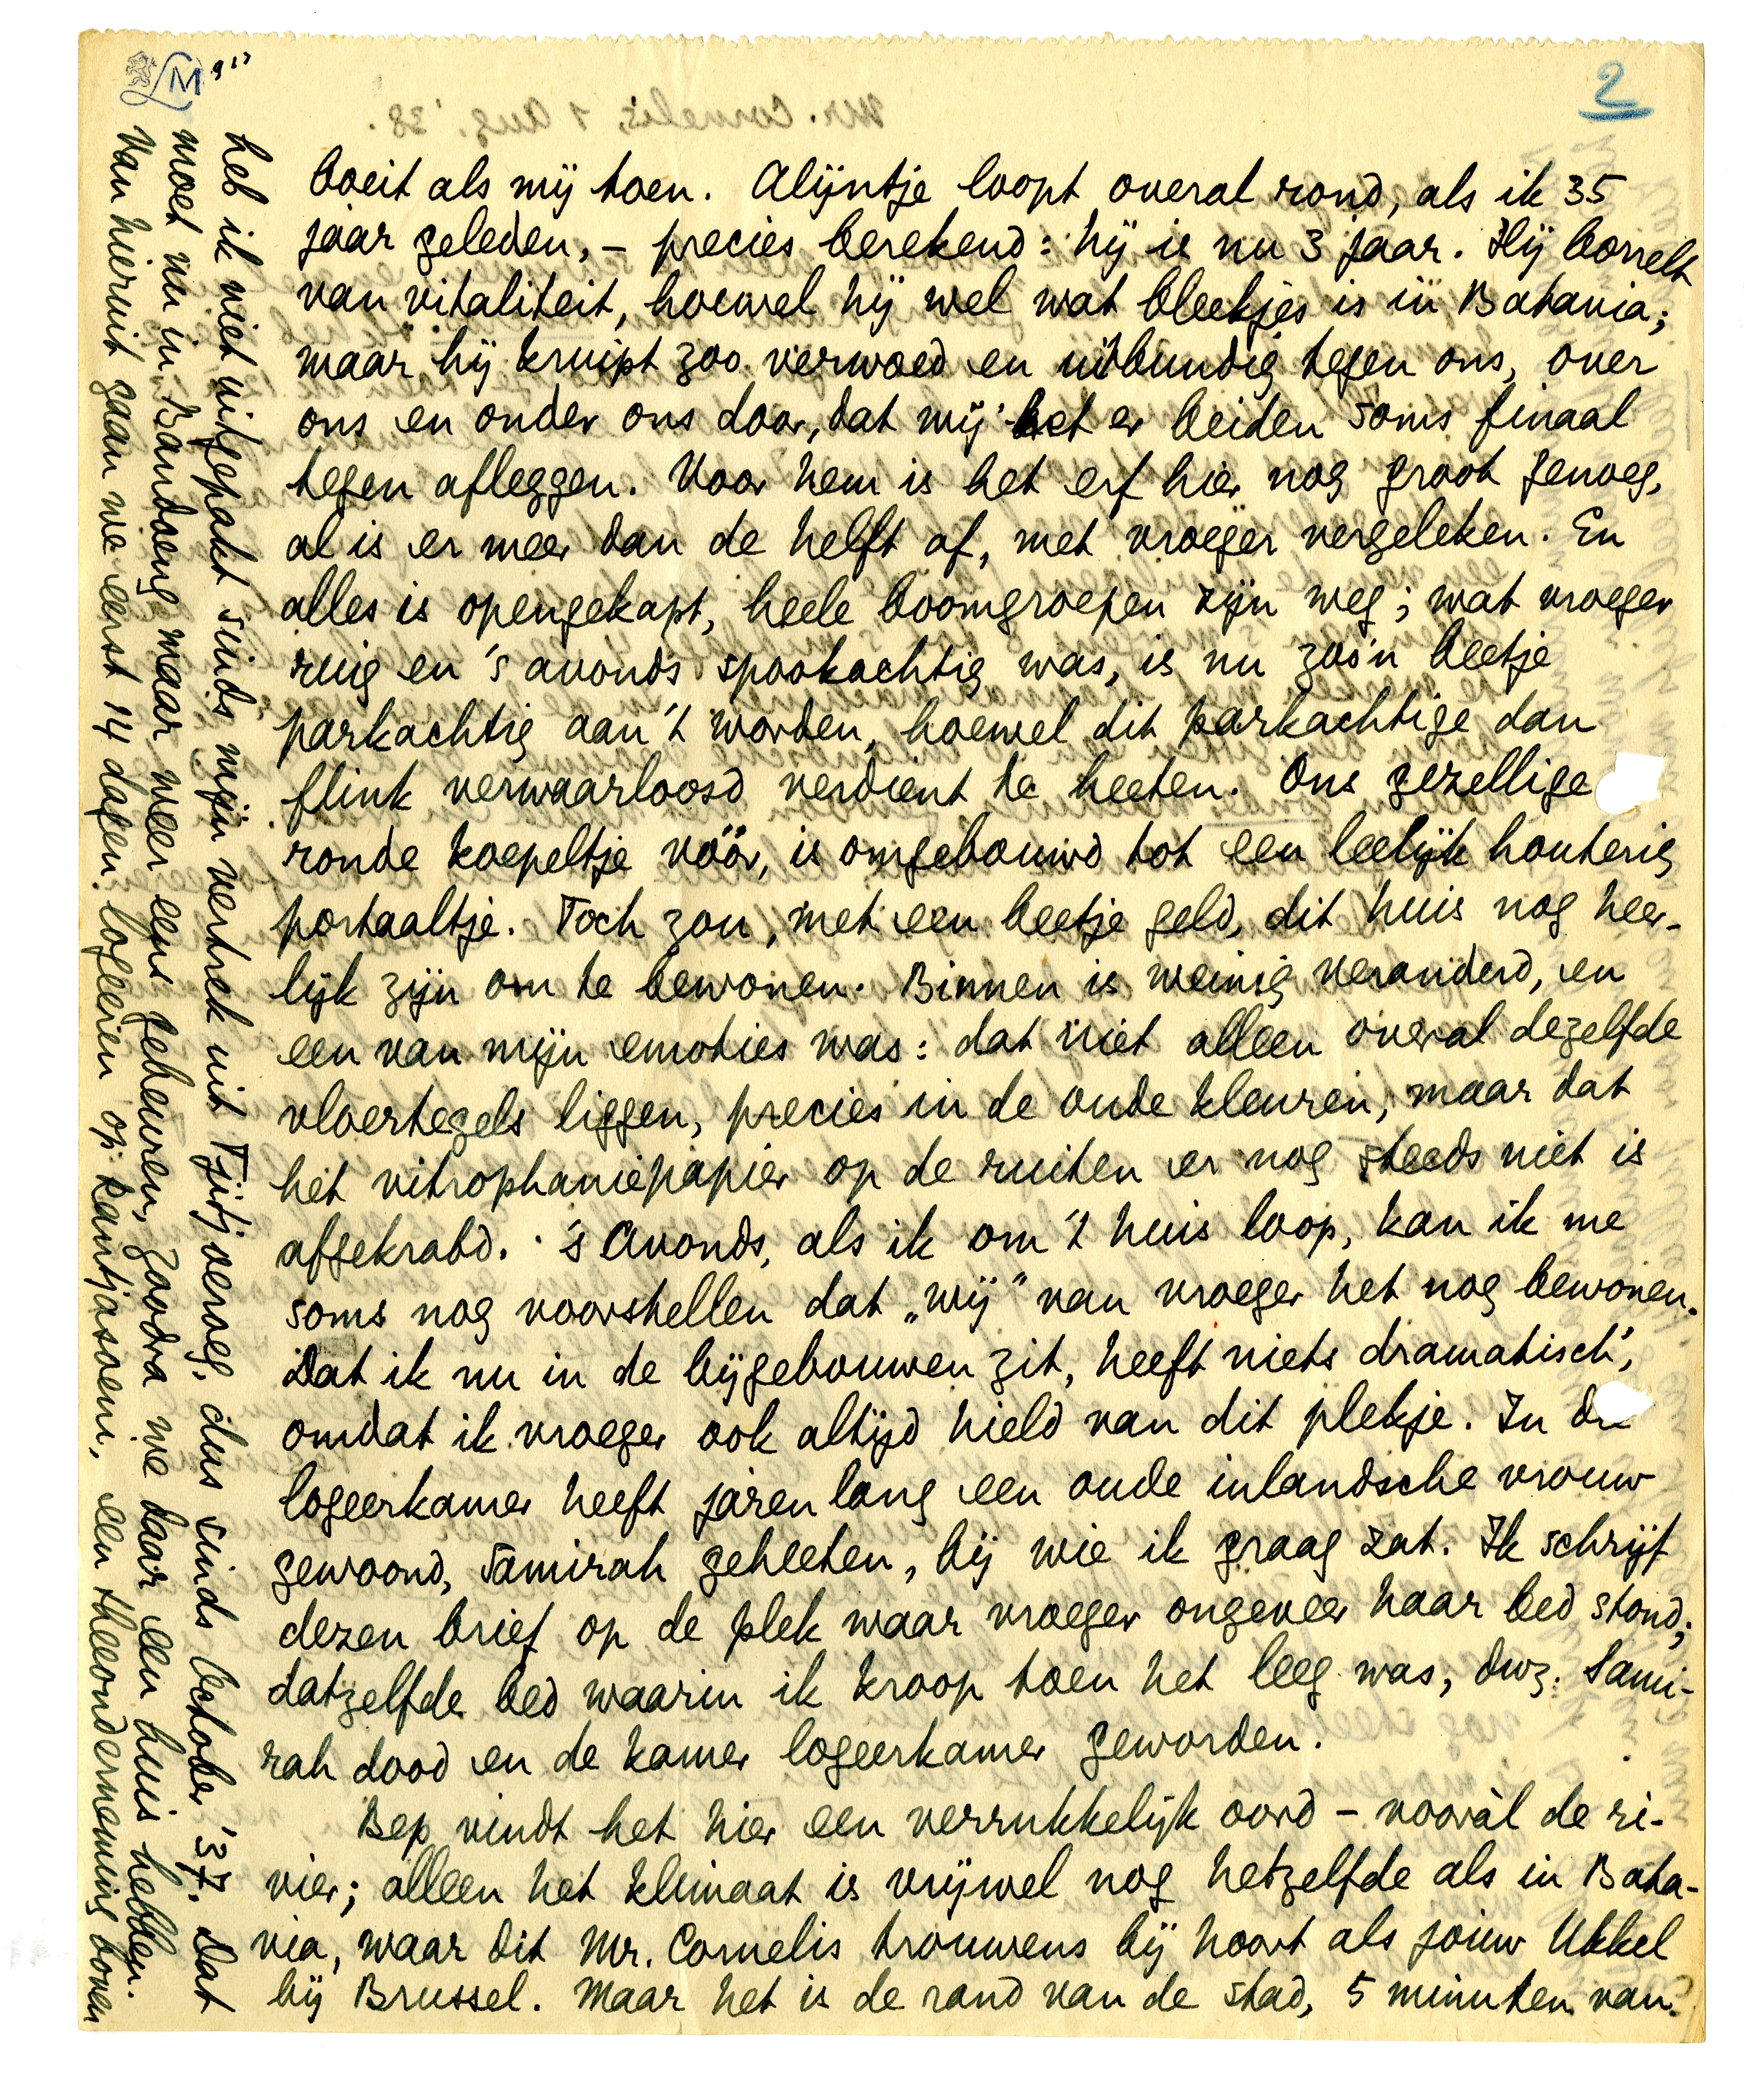 2
boeit als mij toen. Alijntje loopt overal rond, als ik 35
jaar geleden, – precies berekend: hij is nu 3 jaar. Hij borrelt
van vitaliteit, hoewel hij wel wat bleekjes is in Batavia;
maar hij kruipt zoo verwoed en uitbundig tegen ons, over
ons en onder ons door, dat wij het er beiden soms finaal
tegen afleggen. Voor hem is het erf hier nog groot genoeg,
al is er meer dan de helft af, met vroeger vergeleken. En
alles is opengekapt, heele boomgroepen zijn weg; wat vroeger
ruig en 's avonds spookachtig was, is nu zoo'n beetje
parkachtig aan 't worden, hoewel dit parkachtige dan
flink verwaarloosd verdient te heeten. Ons gezellige
ronde koepeltje vóór, is omgebouwd tot een leelijk houterig
portaaltje. Toch zou, met een beetje geld, dit huis nog heer-
lijk zijn om te bewonen. Binnen is weinig veranderd, en
een van mijn emoties was: dat niet alleen overal dezelfde
vloertegels liggen, precies in de oude kleuren, maar dat
het vitrophaniepapier op de ruiten er nog steeds niet is
afgekrabd. 's Avonds, als ik om 't huis loop, kan ik me
soms nog voorstellen dat „wij" van vroeger het nog bewonen.
Dat ik nu in de bijgebouwen zit, heeft niets dramatisch',
omdat ik vroeger ook altijd hield van dit plekje. In de
logeerkamer heeft jaren lang een oude inlandsche vrouw
gewoond, Samirah geheeten, bij wie ik graag zat. Ik schrijf
dezen brief op de plek waar vroeger ongeveer haar bed stond;
datzelfde bed waarin ik kroop toen het leeg was, dwz. Sami-
rah dood en de kamer logeerkamer geworden.
Bep vindt het hier een verrukkelijk oord – vooràl de ri-
vier; alleen het klimaat is vrijwel nog hetzelfde als in Bata-
via, waar dit Mr. Cornelis trouwens bij hoort als jouw Ukkel
bij Brussel. Maar het is de rand van de stad, 5 minuten van
heb ik niet uitgepakt sinds mijn vertrek uit Tjitjoeroeg, dus sinds October '37. Dat
moet nu in Bandoeng maar weer eens gebeuren, zoodra we daar een huis hebben.
Van hieruit gaan we eerst 14 dagen logeeren op Kantjasoem, een theeonderneming boven